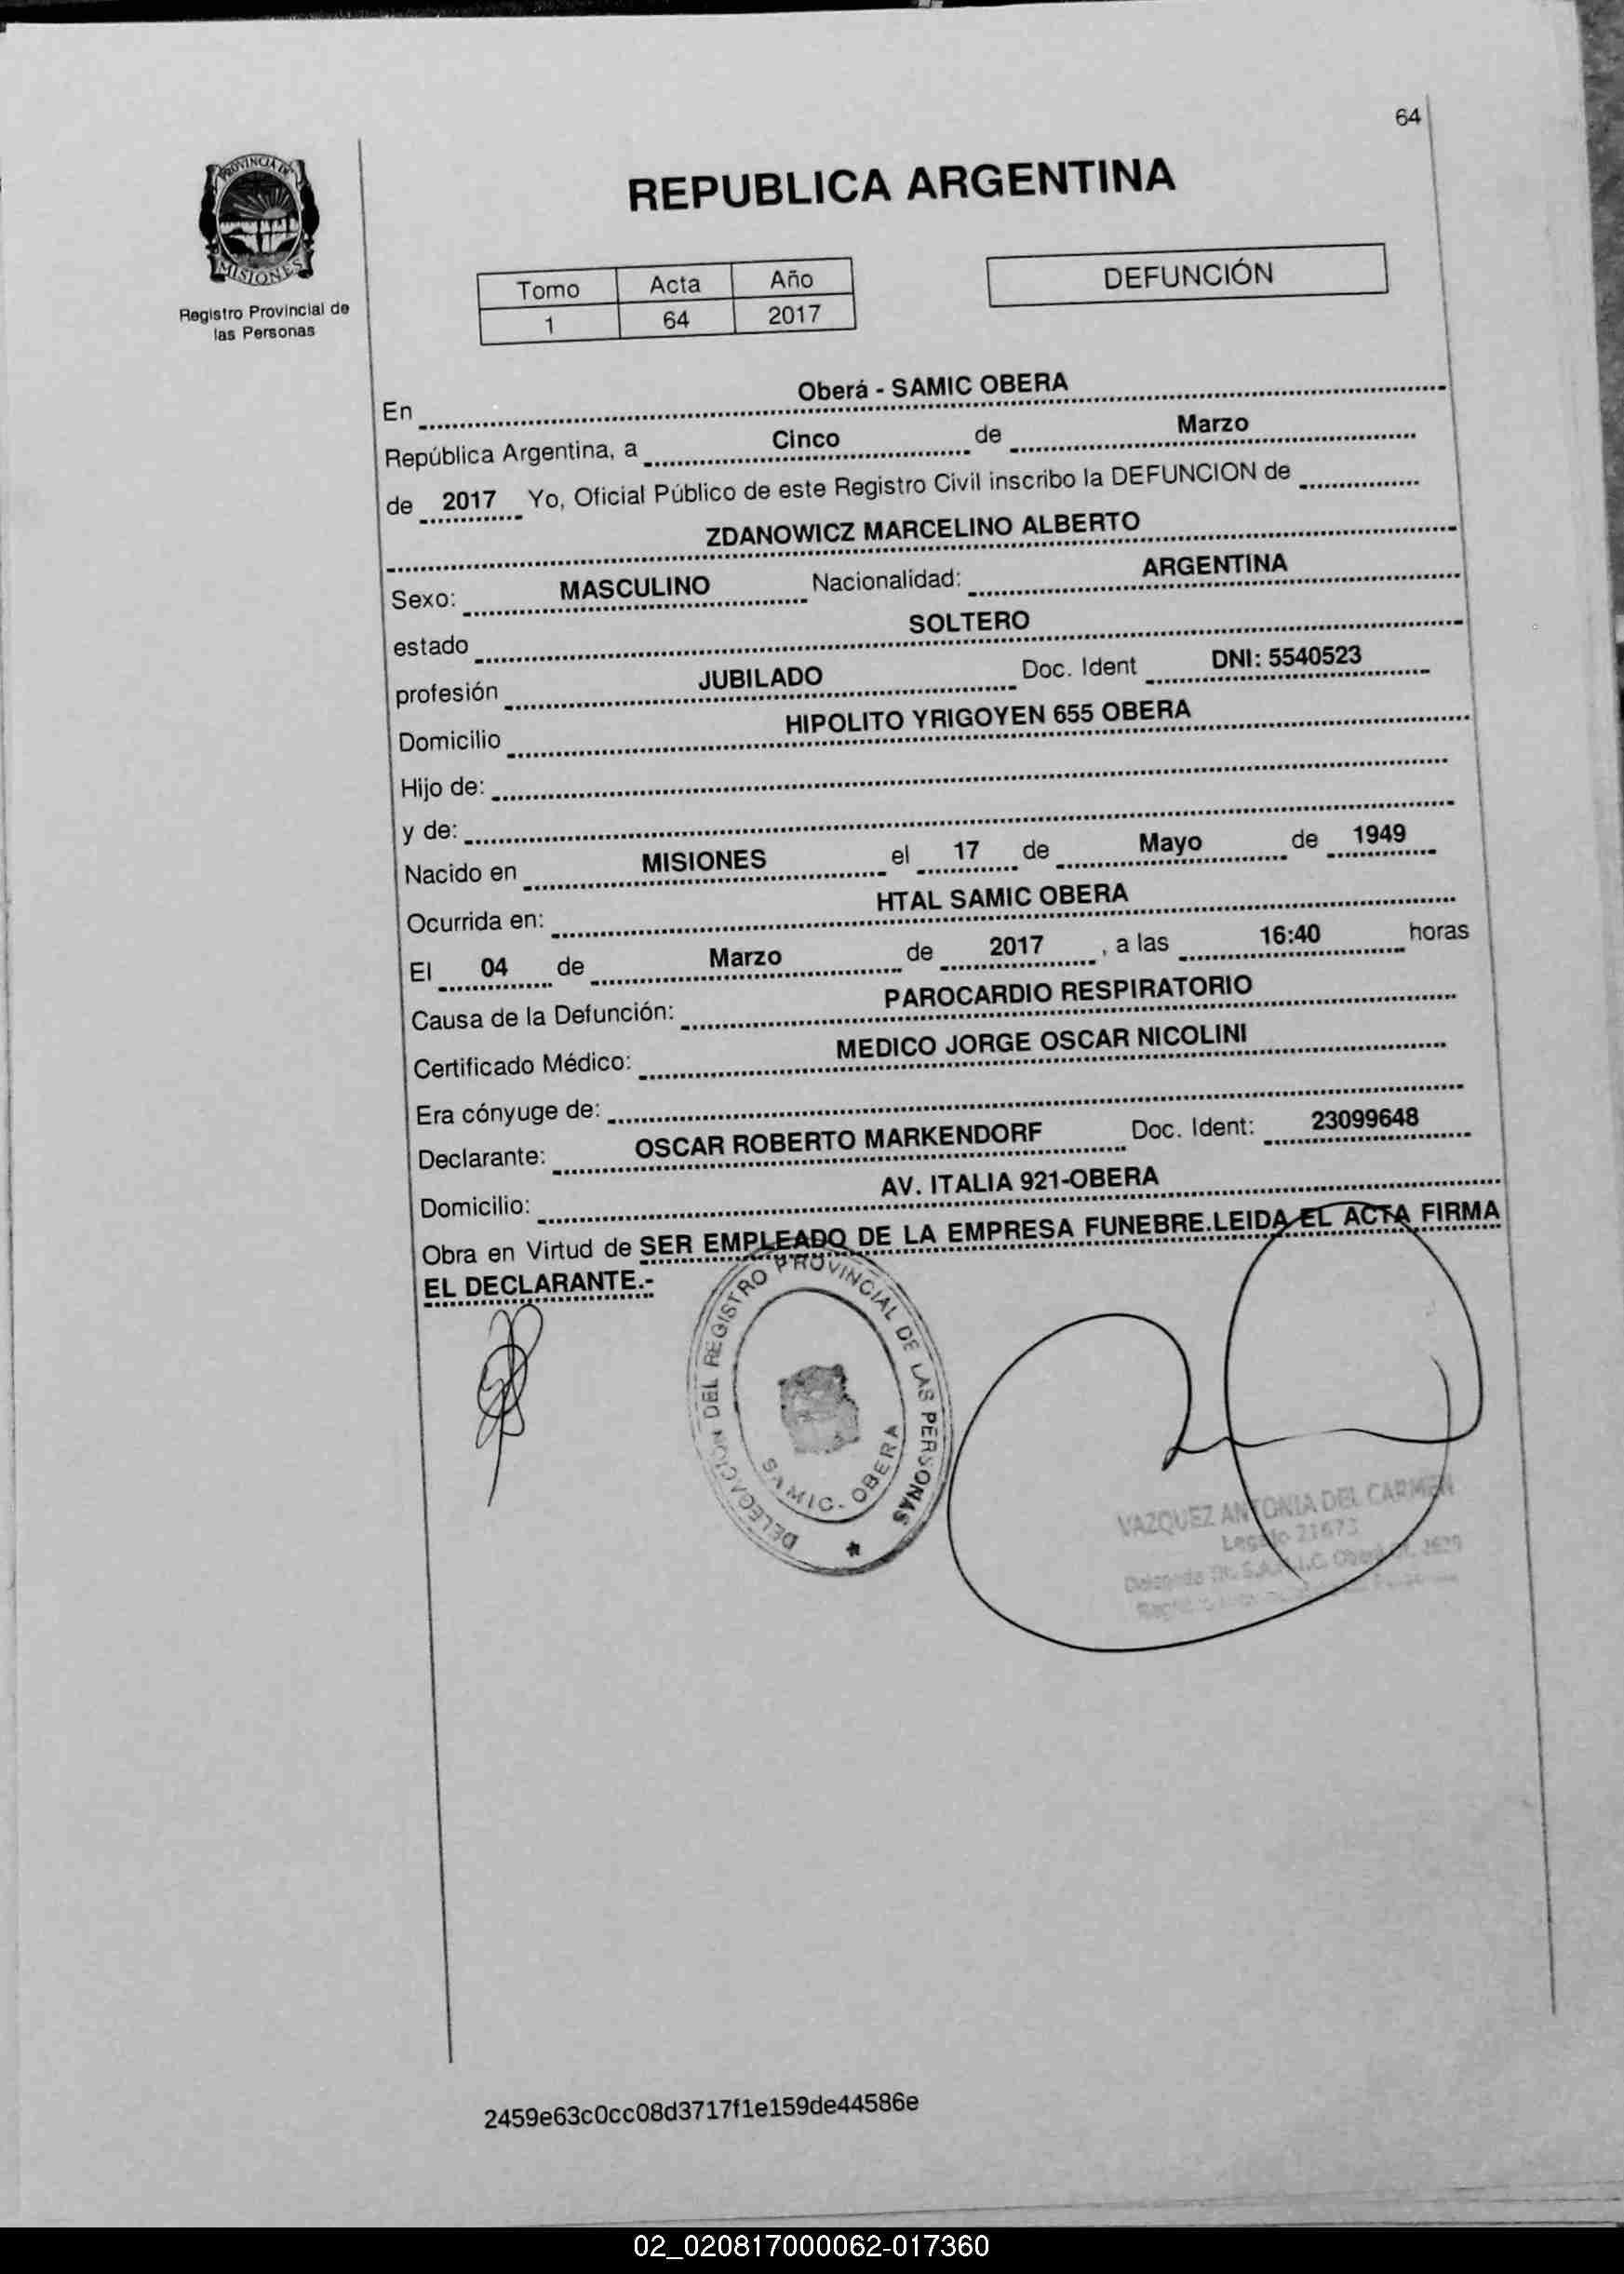 64
PROVINCIA DE
MISIONES
Registro Provincial de
las Personas
REPUBLICA ARGENTINA
Tomo Acta Año
1 64 2017
DEFUNCIÓN
En Oberá - SAMIC OBERA
República Argentina, a Cinco de Marzo
de 2017 Yo, Oficial Público de este Registro Civil inscribo la DEFUNCION de
ZDANOWICZ MARCELINO ALBERTO
Sexo: MASCULINO Nacionalidad: ARGENTINA
estado SOLTERO
profesión JUBILADO Doc. Ident DNI: 5540523
Domicilio HIPOLITO YRIGOYEN 655 OBERA
Hijo de:
y de:
Nacido en MISIONES el 17 de Mayo de 1949
Ocurrida en: HTAL SAMIC OBERA
El 04 de Marzo de 2017 , a las 16:40 horas
Causa de la Defunción: PAROCARDIO RESPIRATORIO
Certificado Médico: MEDICO JORGE OSCAR NICOLINI
Era cónyuge de:
Declarante: OSCAR ROBERTO MARKENDORF Doc. Ident: 23099648
Domicilio: AV. ITALIA 921-OBERA
Obra en Virtud de SER EMPLEADO DE LA EMPRESA FUNEBRE.LEIDA EL ACTA FIRMA
EL DECLARANTE.-
DELEGACION DEL REGISTRO PROVINCIAL DE LAS PERSONAS
SAMIC - OBERA
VAZQUEZ ANTONIA DEL CARMEN
2459e63c0cc08d3717f1e159de44586e
02_020817000062-017360